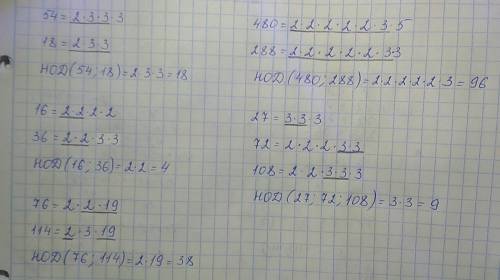 54 = 2·3·3·3
18 = 2·3·3
НОД(54; 18) = 2·3·3 = 18
16 = 2·2·2·2
36 = 2·2·3·3
НОД(16; 36) = 2·2 = 4
76 = 2·2·19
114 = 2·3·19
НОД(76; 114) = 2·19 = 38
480 = 2·2·2·2·2·3·5
288 = 2·2·2·2·2·3·3
НОД(480; 288) = 2·2·2·2·2·3 = 96
27 = 3·3·3
72 = 2·2·2·3·3
108 = 2·2·3·3·3
НОД(27; 72; 108) = 3·3 = 9